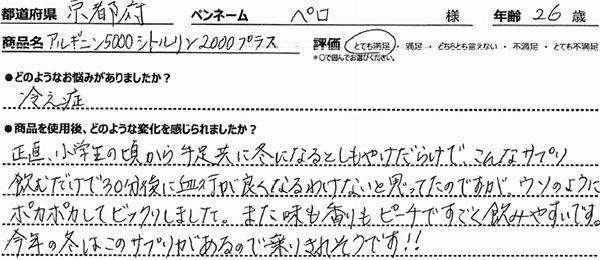 都道府県 京都府 ペンネーム ペロ 様 年齢 26 歳
商品名 アルギニン5000シトルリン2000プラス 評価 とても満足 ・ 満足 ・ どちらとも言えない ・ 不満足 ・ とても不満足
*○で囲んでお選びください。
●どのようなお悩みがありましたか?
冷え症
●商品を使用後、どのような変化を感じられましたか?
正直、小学生の頃から手足共に冬になるとしもやけだらけで、こんなサプリ
飲むだけで30分後に血行が良くなるわけないと思ってたのですが、ウソのように
ポカポカしてビックリしました。また味も香りもピーチですごく飲みやすいです。
今年の冬はこのサプリがあるので乗りきれそうです!!